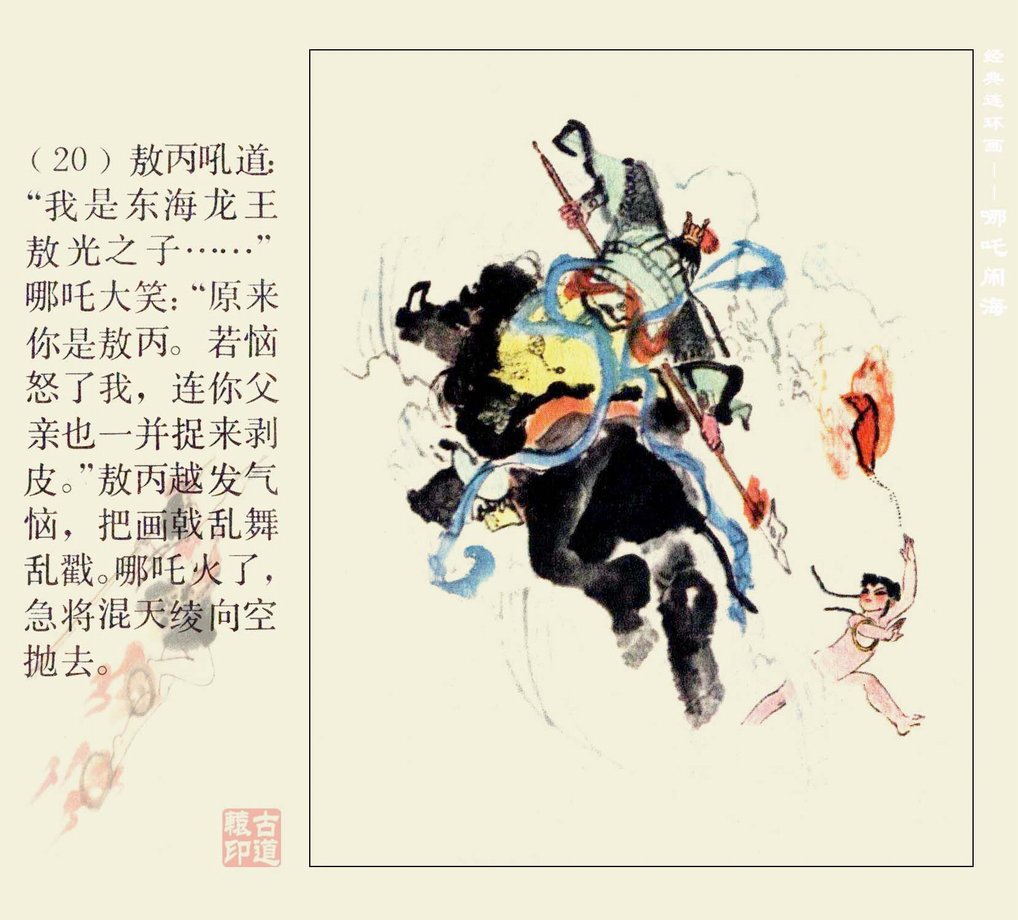 （20）敖丙吼道:
“我是东海龙王
敖光之子……”
哪吒大笑:“原来
你是敖丙。若恼
怒了我，连你父
亲也一并捉来剥
皮。”敖丙越发气
恼，把画戟乱舞
乱戳。哪吒火了，
急将混天绫向空
抛去。
经典连环画——哪吒闹海
古道
辕印